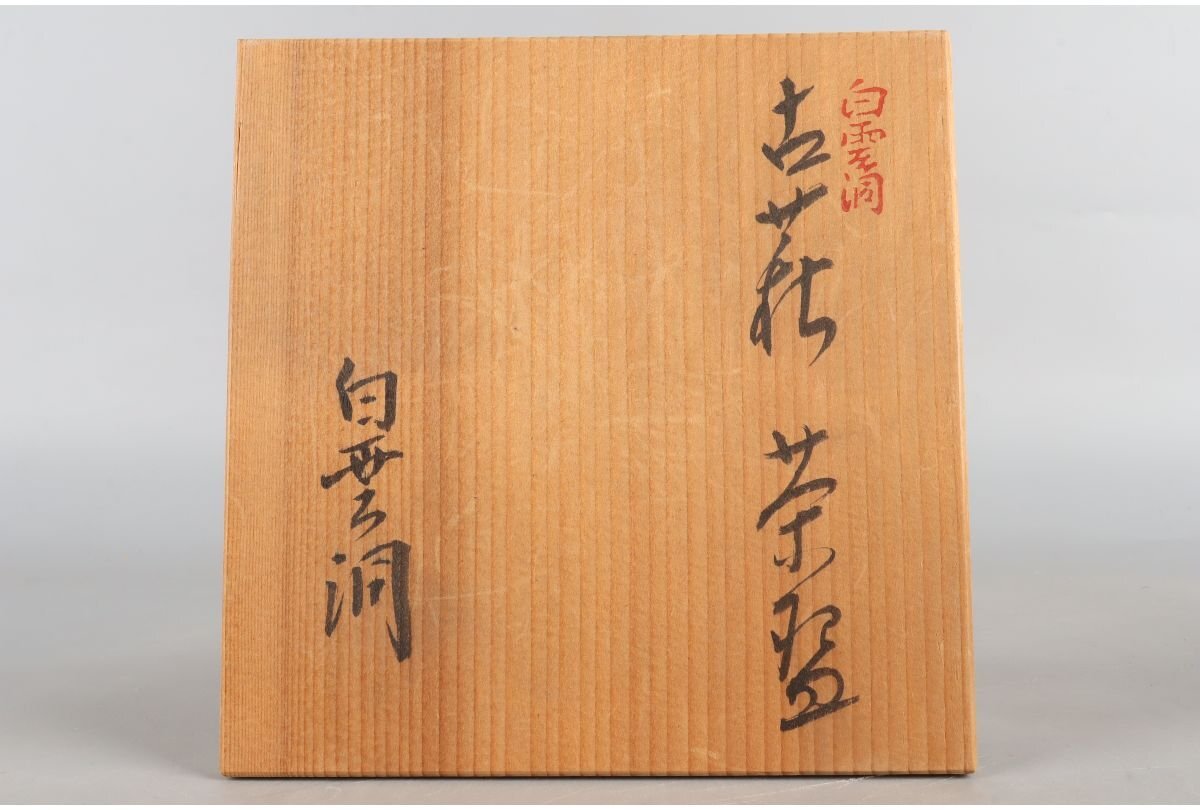 白雲洞
古萩 茶盌
白雲洞